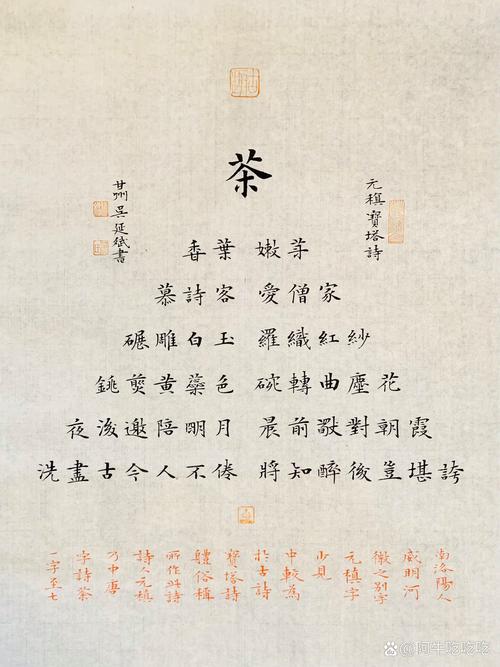 茶
元稹寶塔詩
香葉 嫩芽
慕詩客 愛僧家
碾雕白玉 羅織紅紗
銚煎黃蘂色 碗轉曲塵花
夜後邀陪明月 晨前對朝霞
洗盡古今人不倦 將知醉後豈堪誇
甘州吳延斌書
一字至七
字詩茶
乃中唐
詩人元稹
所作此詩
體俗稱
寶塔詩
於古詩
中較為
少見
元稹字
微之別字
威明河
南洛陽人
@阿牛吃吃吃